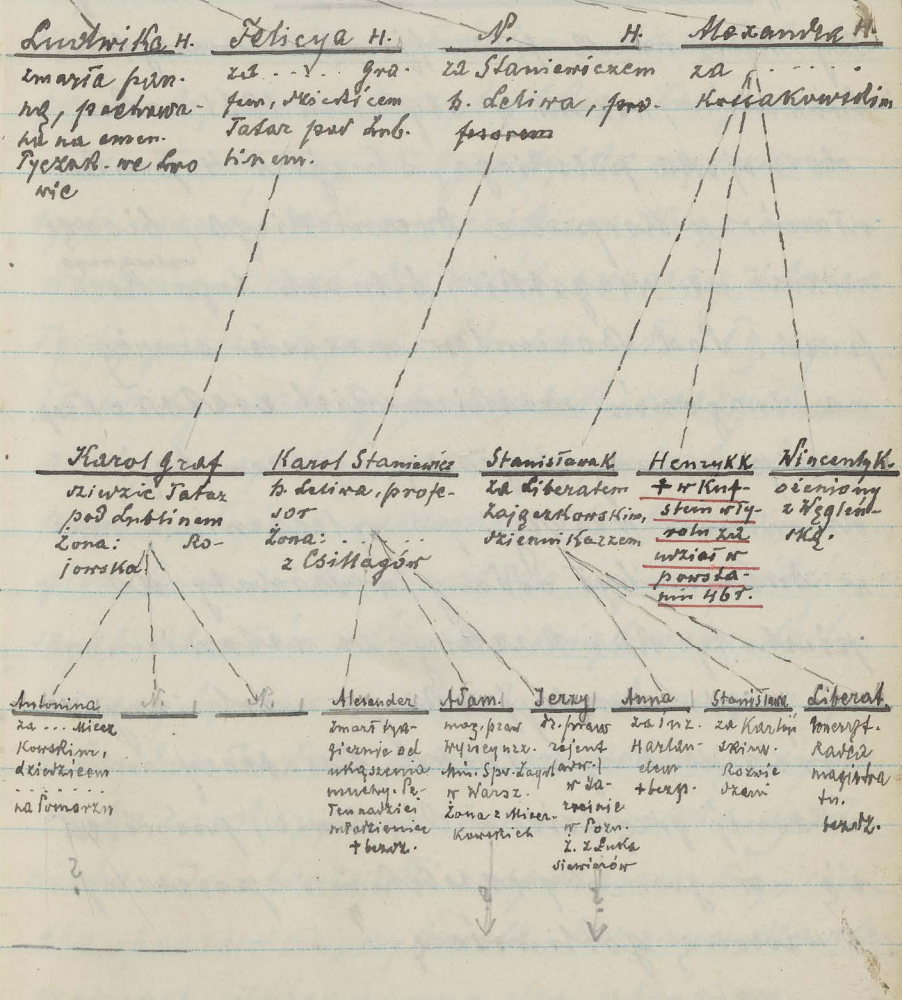 Ludwika H.
zmarła pan-
ną, pochowa-
na na cmen.
Łyczak. we Lwo
wie
Felicya H.
za . . . . . Gra-
fem, dziedzicem
Tatar pod Lub-
linem.
N. H.
za Staniewiczem
h. Leliwa, pro-
fesorem
Alexandra H.
za . . . . . .
Kossakowskim
Karol Graf
dziedzic Tatar
pod Lublinem
Żona: Ro-
jowska
Karol Staniewicz
h. Leliwa, profe-
sor
Żona: . . . .
z Csillagów
Stanisława K
za Liberatem
Zajączkowskim,
dziennikarzem
Henryk K
+ w Kuf-
stein w Ty-
rolu za
udział w
powsta-
niu 46 r.
Wincenty K.
ożeniony
z Węgleń-
ską.
Antonina
za ... Miecz
kowskim,
dziedzicem
. . . . . . . .
na Pomorzu
?
N.
N.
Alexander
zmarł tra-
gicznie od
ukąszenia
muchy. Pe-
łen nadziei
młodzieniec
+ bezdz.
Adam.
mag. praw
wyższy urz.
Min. Spr. Zagr.
w Warsz.
Żona z Miecz-
kowskich
?
Jerzy
dr. praw
rejent
(adw.)
w
w Pozn.
Ż. z Łuka
siewiczów
?
Anna
za inż.
Harlan-
derem
+ bezp.
Stanisława
za Karliń
skim.
Rozwie
dzeni
Liberat.
emeryt.
Radca
magistra
tu.
bezdz.